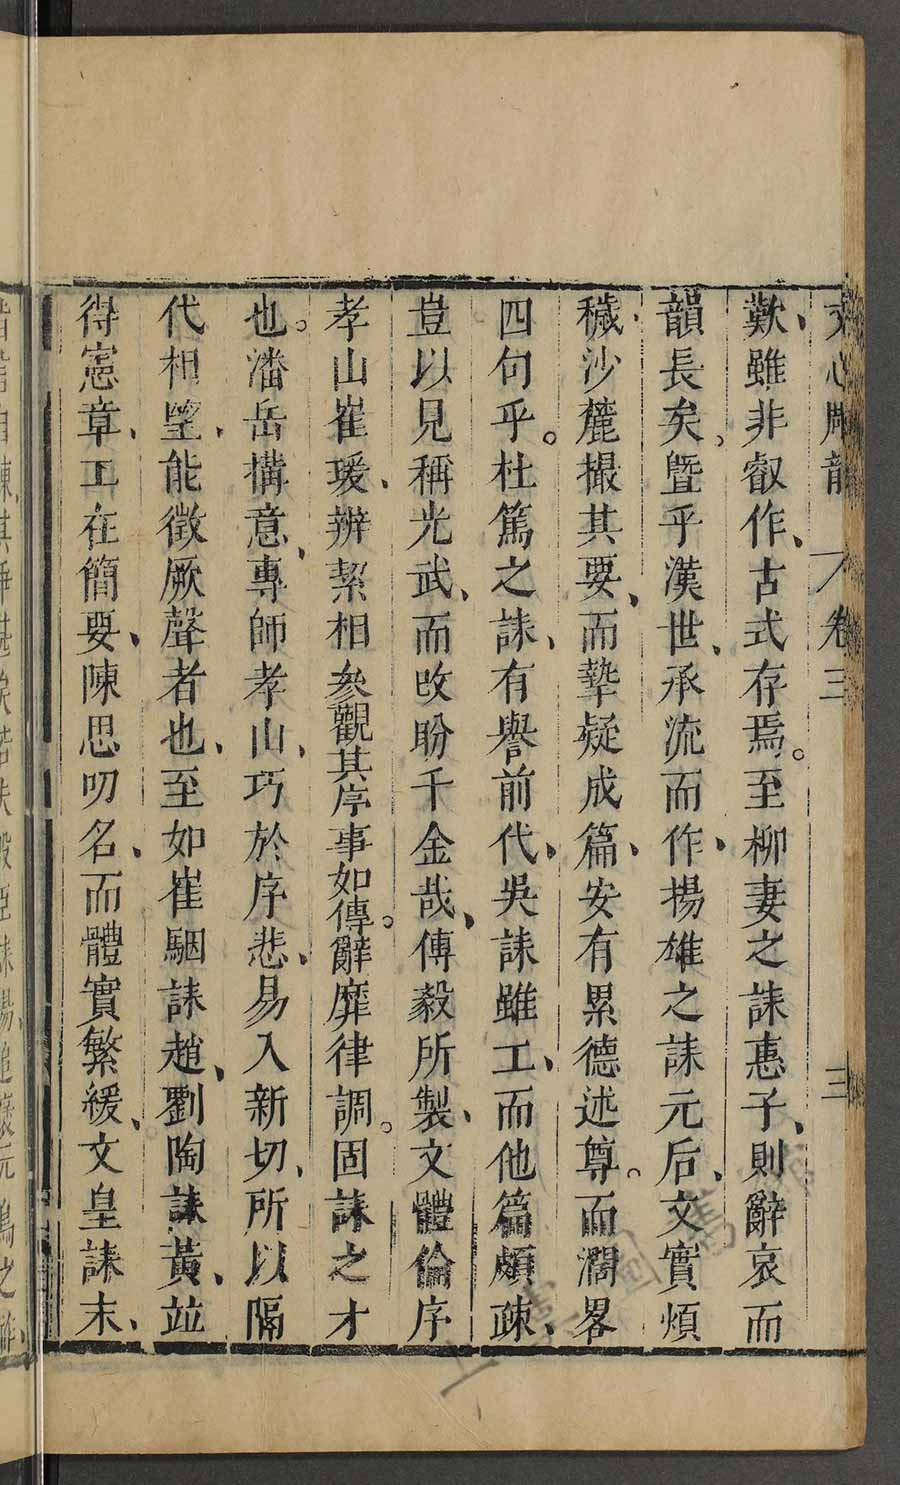 文心雕龍　卷三　三
歎、雖非叡作、古式存焉。至柳妻之誄惠子、則辭哀而
韻長矣、暨乎漢世、承流而作、揚雄之誄元后、文實煩
穢、沙麓撮其要、而摯疑成篇、安有累德述尊。而濶畧
四句乎。杜篤之誄、有譽前代、吳誄雖工、而他篇頗疎、
豈以見稱光武、而改盼千金哉、傅毅所製、文體倫序
孝山崔瑗、辨絜相參觀其序事如傳。辭靡律調。固誄之才
也。潘岳構意、專師孝山、巧於序悲、易入新切、所以隔
代相望、能徵厥聲者也、至如崔駰誄趙、劉陶誄黃、竝
得憲章、工在簡要、陳思叨名、而體實繁緩、文皇誄末、